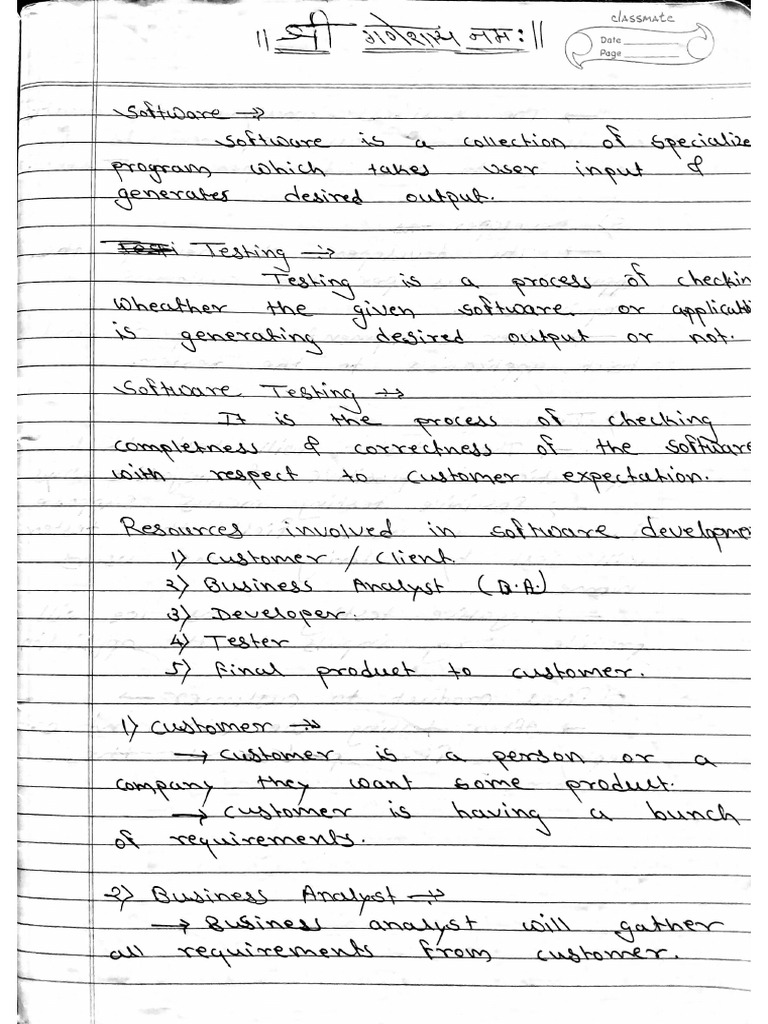 || श्री गणेशाय नमः ||
classmate
Date
Page
Software →
Software is a collection of specialize
program, which takes user input &
generates desired output.
Testing →
Testing is a process of checkin
wheather the given software or applicati
is generating desired output or not.
Software Testing →
It is the process of checking
completness & correctness of the software
with respect to customer expectation.
Resources involved in software developmen
1) Customer / Client.
2) Business Analyst (B.A.)
3) Developer.
4) Tester
5) Final product to customer.
1) Customer →
→ Customer is a person or a
company they want some product.
→ Customer is having a bunch
of requirements.
2) Business Analyst →
→ Business analyst will gather
all requirements from customer.